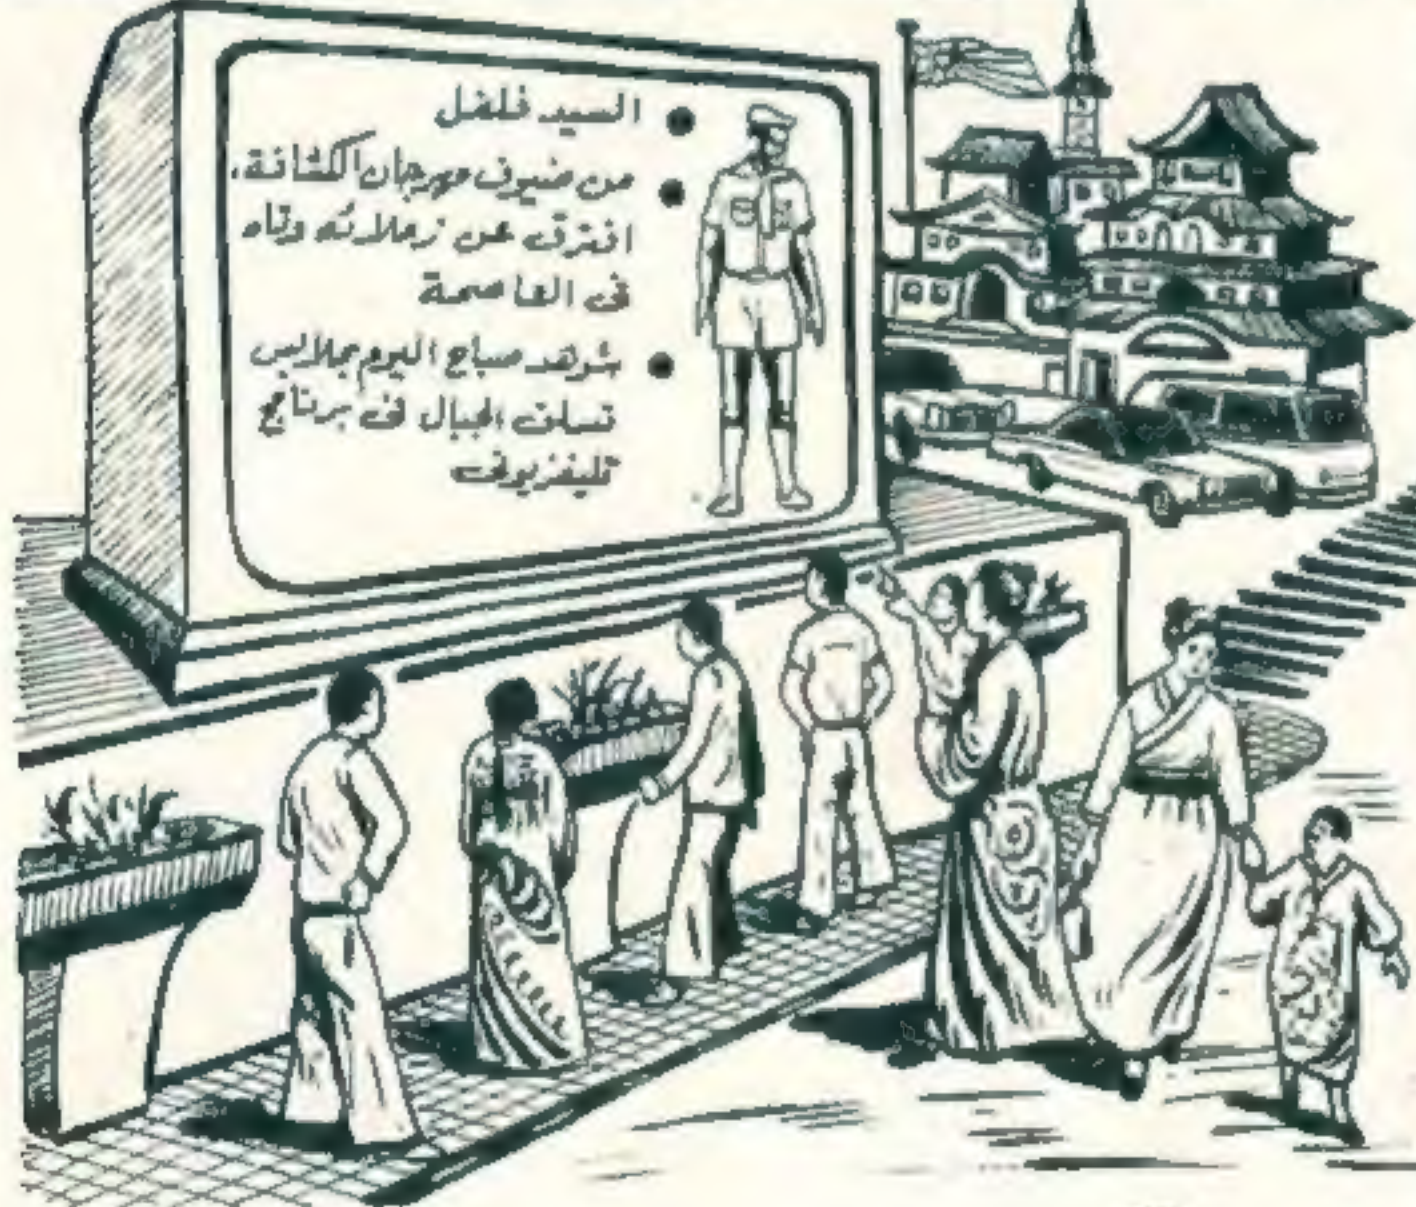 ● السيد فلفل
● من ضيوف مهرجان الكشافة،
افترق عن زملائه وتاه
فى العاصمة
● شوهد صباح اليوم بملابس
تسلق الجبال فى برنامج
تليفزيونى